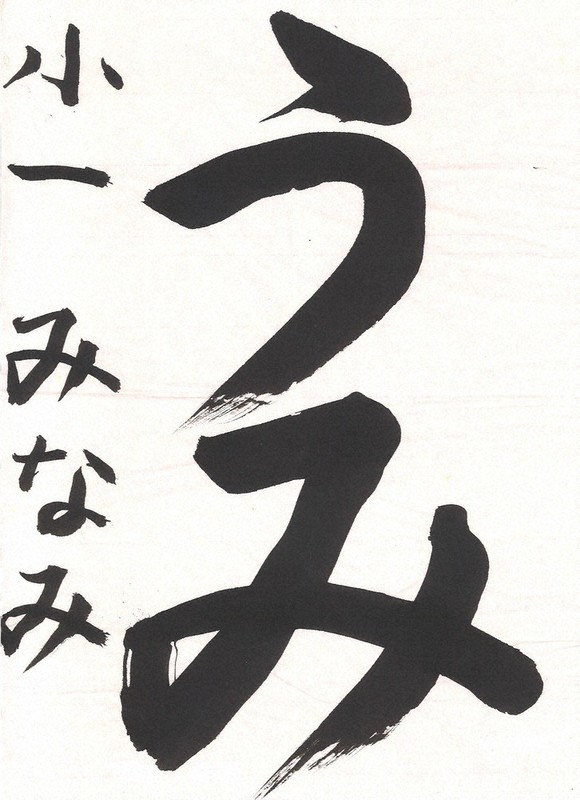 うみ
小一 みなみ